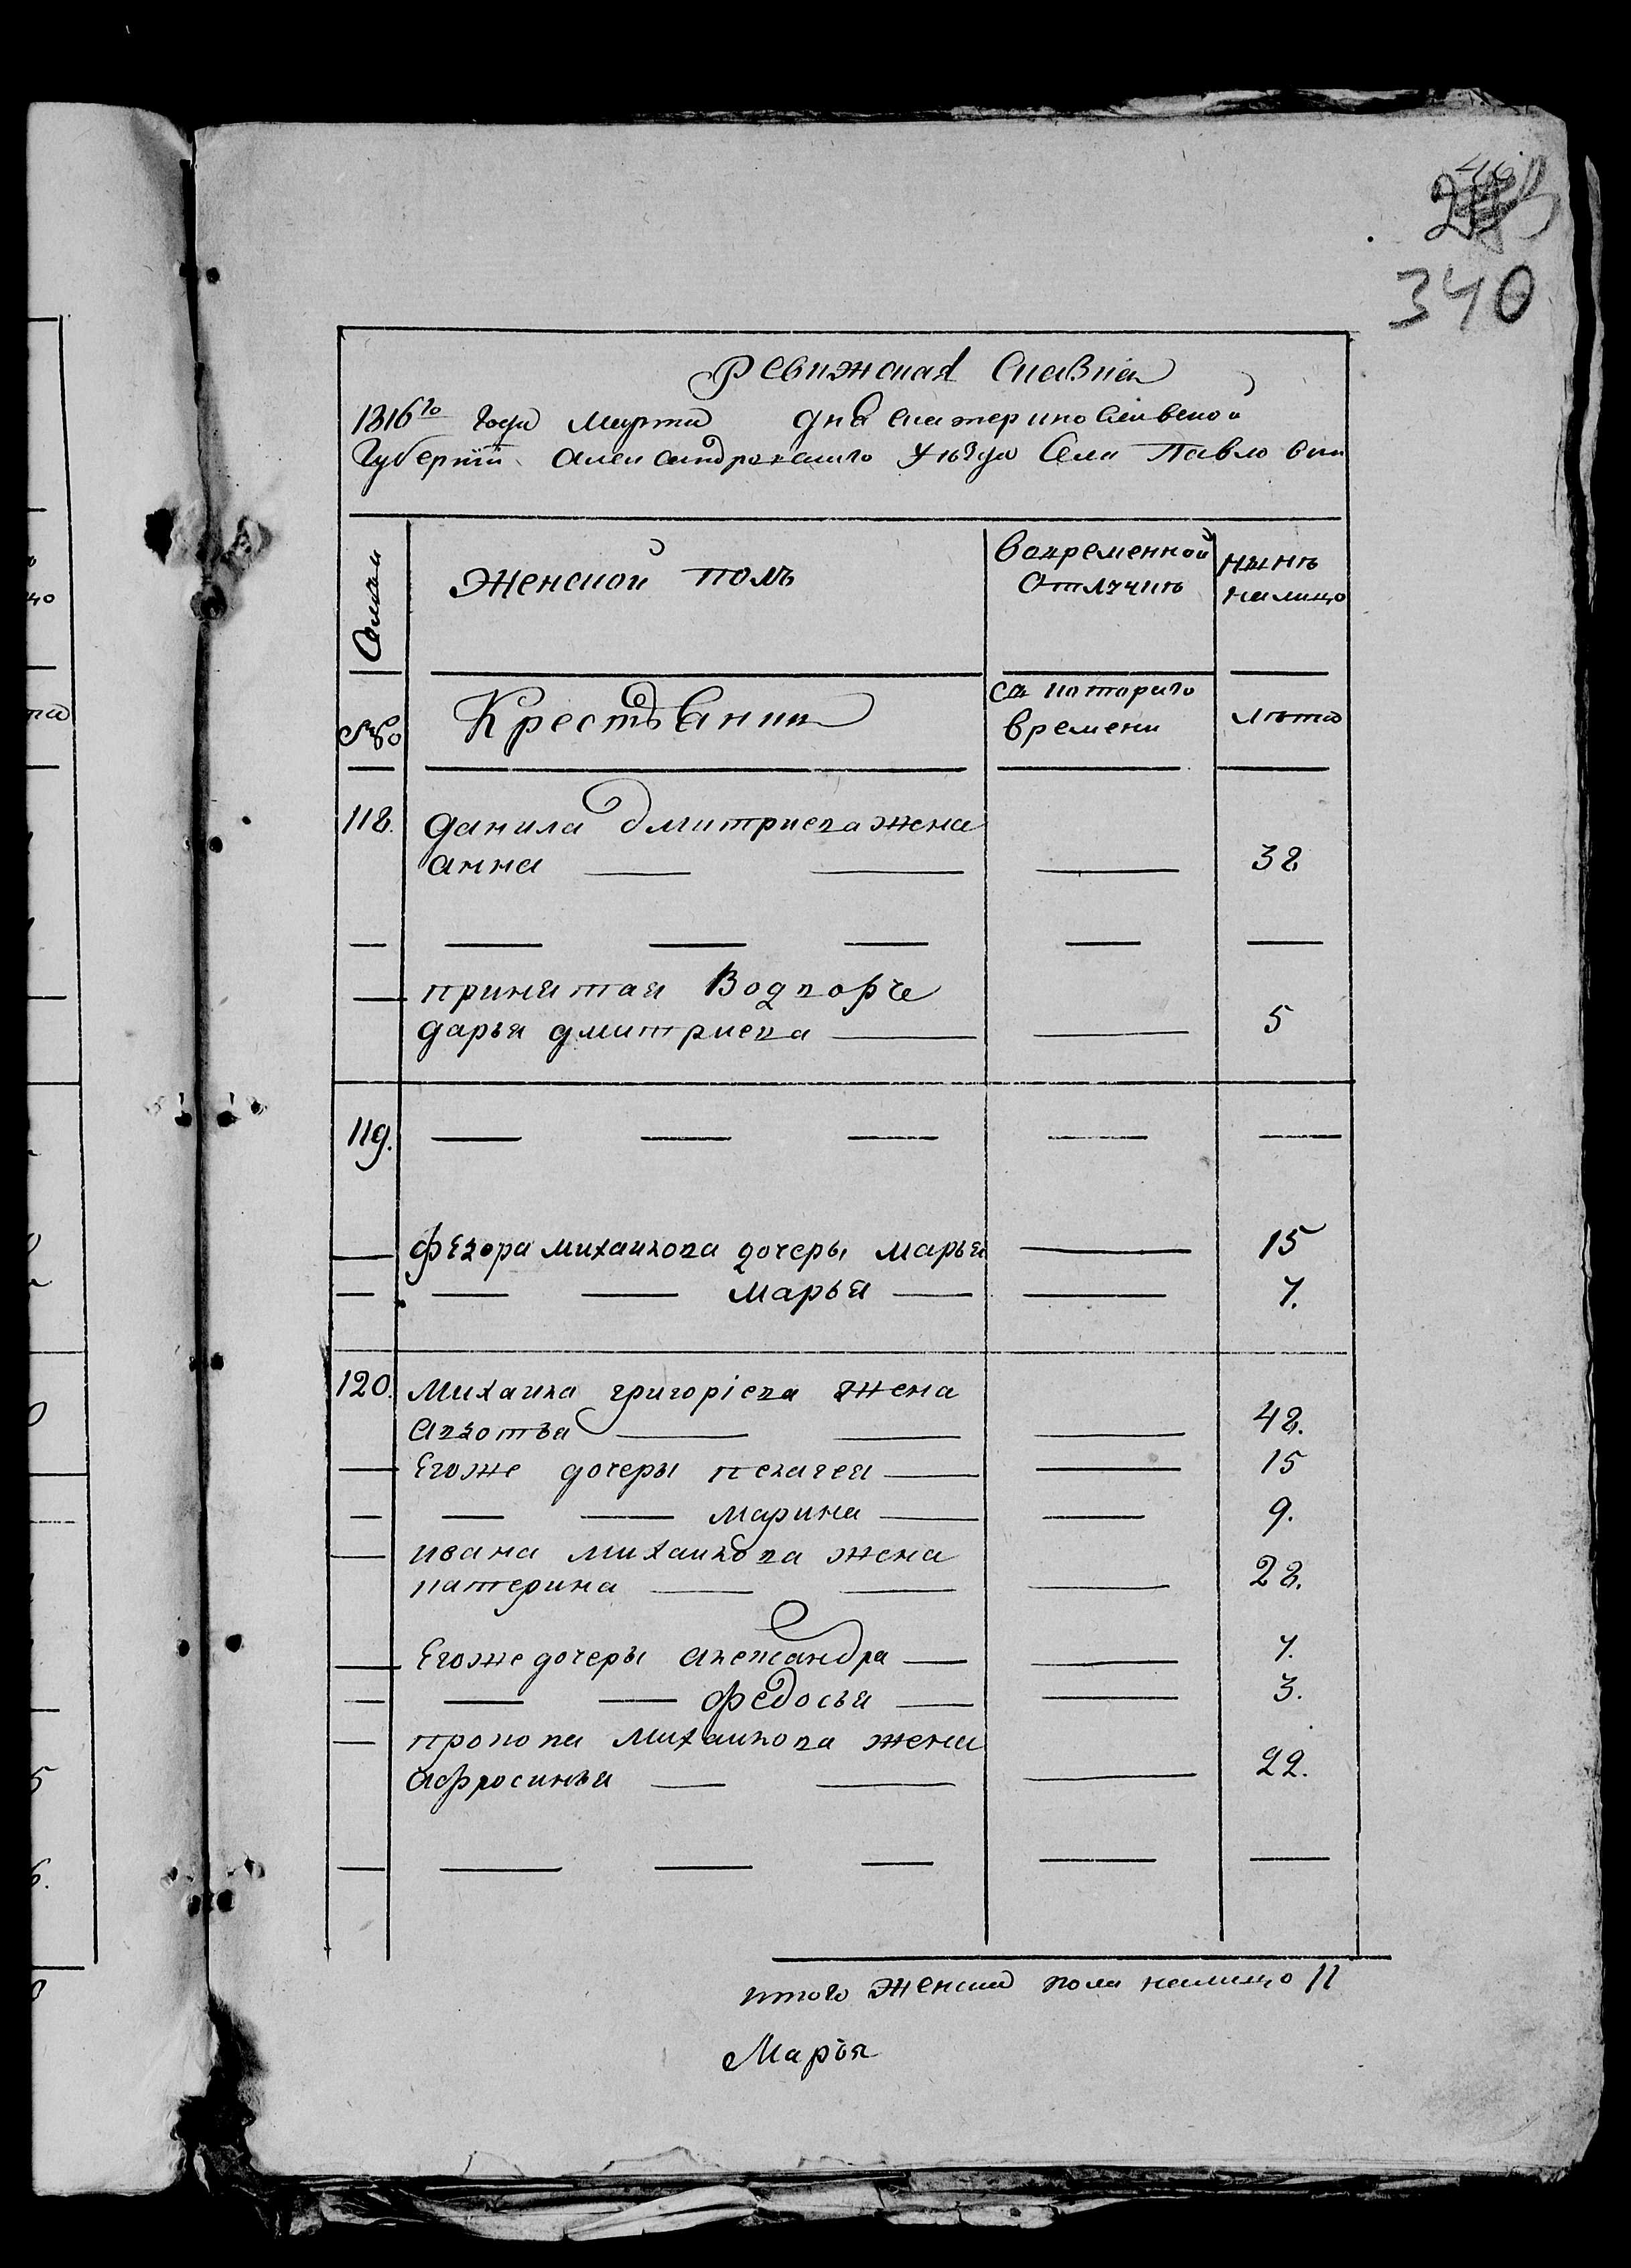 340
Ревижская Сказка
1816го года Марта дня Екатеринославской
Губернїи Александровскаго Уѣзда Села Павловки
Семьи
Женской полъ
вовременной
Отлучкѣ
нынѣ
налицо
№
Крестьяния
съ котораго
времени
лѣта
118. данила дмитриева жена
анна — — — 38
— — — — — —
— принятая Водворъ
дарья дмитриева — — 5
119. — — — — —
— федора михаилова дочеры марья — 15
— — — марья — — 7.
120. Михаила григорієва жена
авдотья — — — 48.
— Егоже дочеры пелагея — — 15
— — — марина — — 9.
— ивана михаилова жена
катерина — — — 28.
— Егоже дочеры александра — — 7.
— — — федосья — — 3.
— прокопа михаилова жена
афросинья — — — 22.
— — — — — —
итого женска пола налицо 11
Марья